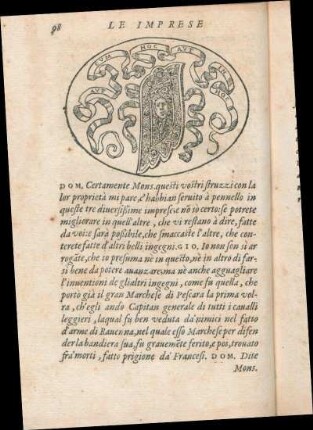 98 LE IMPRESE
AVT CVM HOC AVT IN HOC
DOM. Certamente Mons. questi vostri struzzi con la
lor proprietà mi pare c'habbian seruito à pennello in
queste tre diuersissime imprese: e nō io certo: se potrete
migliorare in quell'altre, che vi restano à dire, fatte
da voi: e sarà possibile, che smaccaste l'altre, che con-
terete fatte d'altri belli ingegni. GIO. Io non son sì ar-
rogāte, che io presuma nè in questo, nè in altro di far-
si bene da potere auanzare: ma nè anche agguagliare
l'inuentioni de gli altri ingegni, come fu quella, che
portò già il gran Marchese di Pescara la prima vol-
ta, ch'egli andò Capitan generale di tutti i caualli
leggieri, laqual fu ben veduta da' nimici nel fatto
d'arme di Rauenna, nel quale esso Marchese per difen
der la bandiera sua, fu grauemēte ferito, e poi, trouato
fra' morti, fatto prigione da' Francesi. DOM. Dite
Mons.